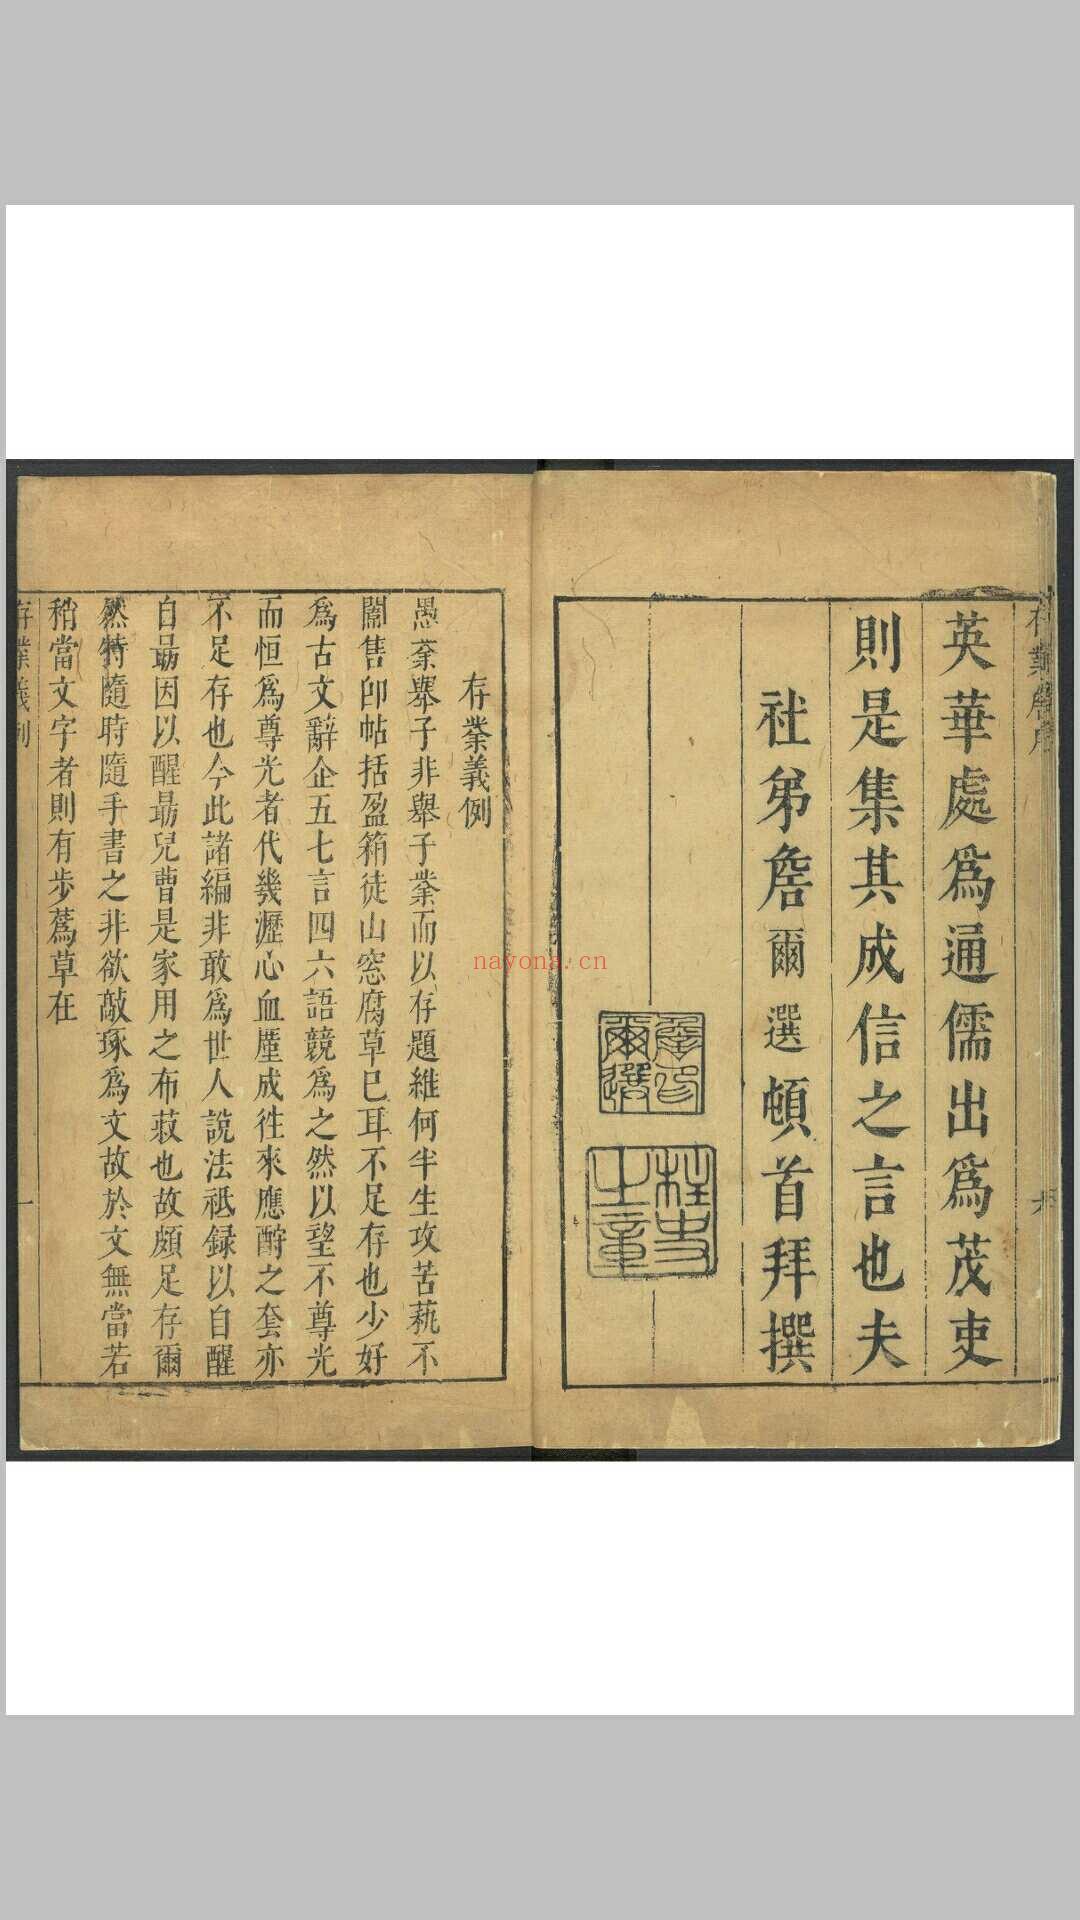 英華處爲通儒出爲茂吏
則是集其成信之言也夫
社弟詹爾選頓首拜撰
爾選
柱史之章
存業義例
愚業舉子非舉子業而以存題維何半生攻苦蓺不
闇售卽帖括盈箱徒山窓腐草已耳不足存也少好
爲古文辭企五七言四六語競爲之然以望不尊光
而恒爲尊光者代幾瀝心血壓成徃來應酧之套亦
不足存也今此諸編非敢爲世人說法祗録以自醒
自朂因以醒朂兒曹是家用之布菽也故頗足存爾
然特隨時隨手書之非欲敲琢爲文故於文無當若
稍當文字者則有步蔿草在
存業義例
一
nayona.cn